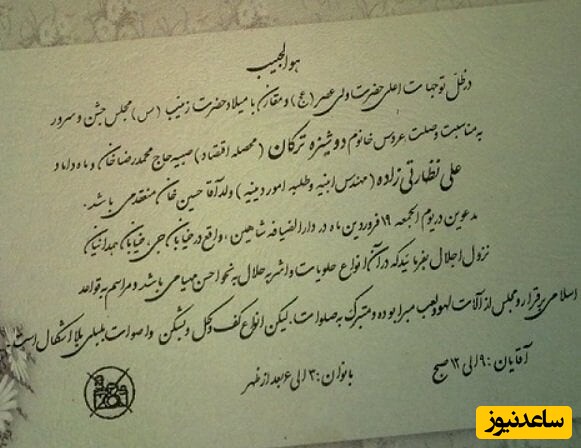 هو الحبیب
در ظلّ توجهات اعلی حضرت ولی عصر (عج) و مقارن با میلاد حضرت زینب (س) مجلس جشن و سرور
به مناسبت وصلت عروس خانوم دوشیزه ترکان (محصله اقتصاد) صبیه حاج محمدرضا خان و ماه داماد
علی نظارتی زاده (مهندس ابنیه و طلبه امور دینیه) ولد آقا حسین خان منعقد می باشد.
مدعوین در یوم الجمعه ۱۹ فروردین ماه در دارالضیافه شاهین، واقع در خیابان جی، خیابان همدانیان
نزول اجلال بفرمائید که در آن انواع حلویات و اشربه حلال به نحو احسن مهیا می باشد و مراسم به قواعد
اسلامی برقرار و مجلس از آلات لهو و لعب مبرا بوده و متبرک به صلوات. لیکن انواع کف و کل و بشکن و اصوات بلبلی بلا اشکال است.
آقایان: ۹ الی ۱۲ صبح
بانوان: ۳ الی ۶ بعد از ظهر
ساعدنیوز